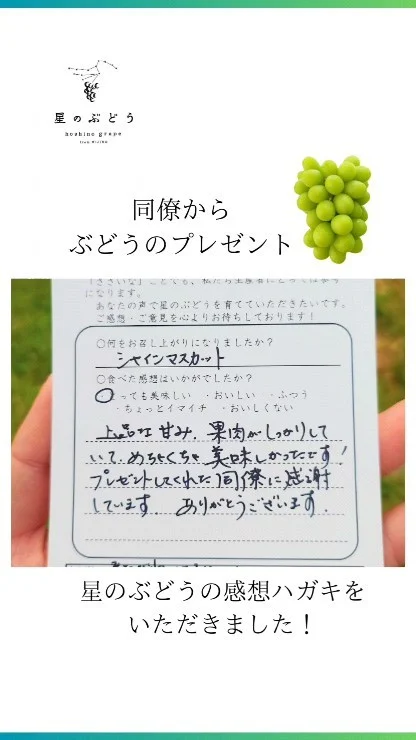 星のぶどう
hoshino grape
同僚から
ぶどうのプレゼント
になります。
あなたの声で星のぶどうを育てていただきたいです。
ご感想・ご意見を心よりお待ちしております！
○何をお召し上がりになりましたか？
シャインマスカット
○食べた感想はいかがでしたか？
・とっても美味しい ・おいしい ・ふつう
・ちょっとイマイチ ・おいしくない
上品な甘み、果肉がしっかりして
いて、めちゃくちゃ美味しかったです！
プレゼントしてくれた同僚に感謝
しています。 ありがとうございます。
星のぶどうの感想ハガキを
いただきました！